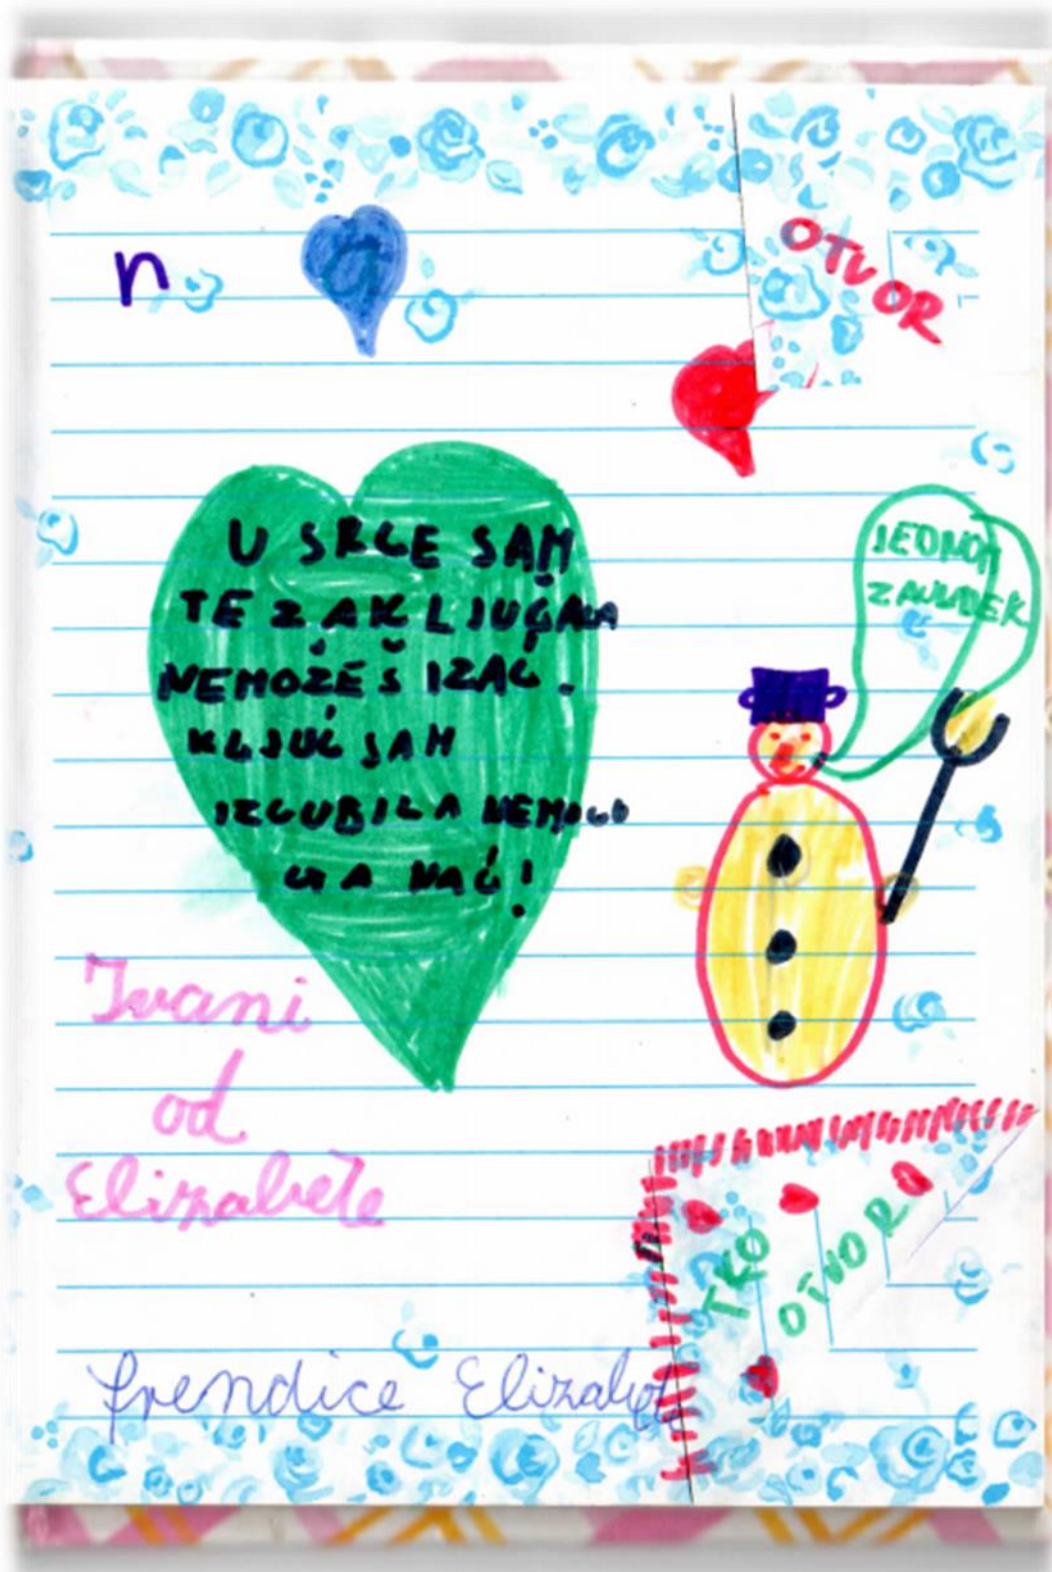 n
OTVOR
U SRCE SAM
TE ZAKLJUČALA
NEMOŽEŠ IZAĆ.
KLJUČ SAM
IZGUBILA NEMOGU
GA NAĆ!
JEDNOM
ZAUVIJEK
Ivani
od
Elizabete
TKO
OTVORO
frendice Elizabete